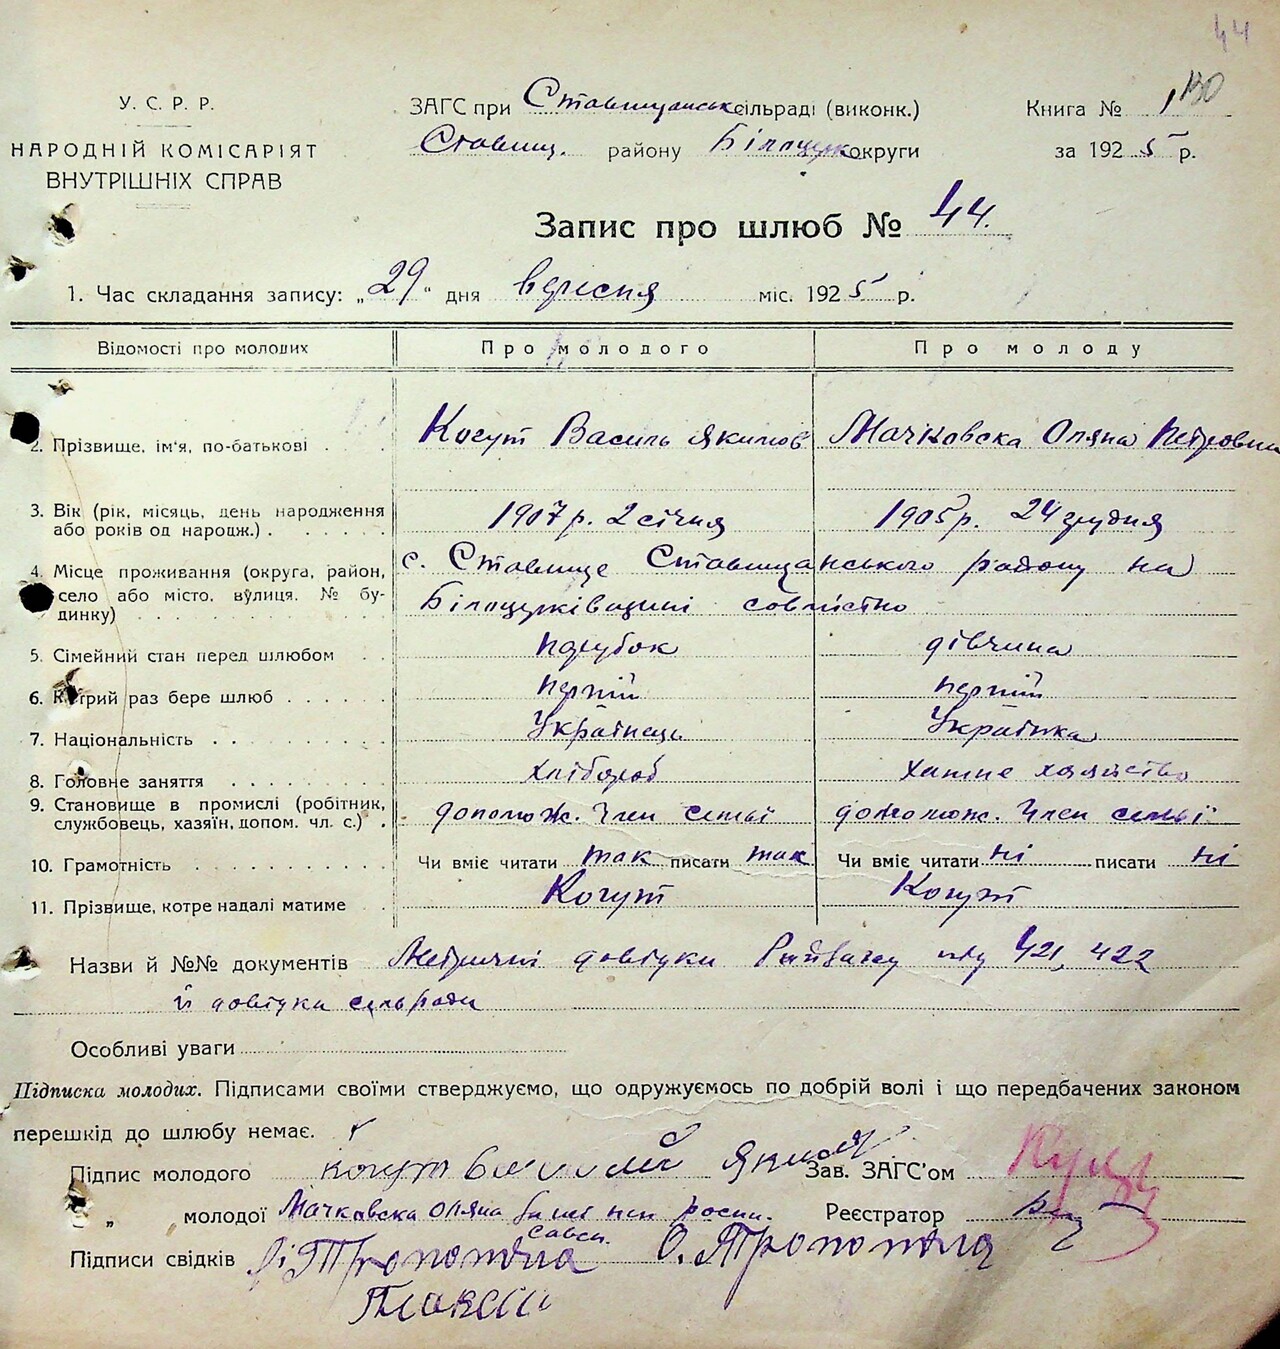 44
У. С. Р. Р.
НАРОДНІЙ КОМІСАРІЯТ
ВНУТРІШНІХ СПРАВ
ЗАГС при Ставищанськ сільраді (виконк.)
Ставищ. району Білоцерк округи
Книга № 1 130
за 1925 р.
Запис про шлюб № 44.
1. Час складання запису: „29“ дня вересня міс. 1925 р.
Відомості про молодих Про молодого Про молоду
2. Прізвище, ім‘я, по-батькові Когут Василь Якимов Мачковська Оляна Петровна
3. Вік (рік, місяць, день народження
або років од народж.) 1907 р. 2 січня 1905 р. 24 грудня
4. Місце проживання (округа, район,
село або місто, вулиця, № бу-
динку)
с. Ставище Ставищанського району на
Білоцерківщині совмістно
5. Сімейний стан перед шлюбом парубок дівчина
6. Котрий раз бере шлюб перший перший
7. Національність Українець Українка
8. Головне заняття хлібороб хатне хазяйство
9. Становище в промислі (робітник,
службовець, хазяїн, допом. чл. с.) допомож. член семьї допомож. член семьї
10. Грамотність Чи вміє читати так писати так Чи вміє читати ні писати ні
11. Прізвище, котре надалі матиме Когут Когут
Назви й №№ документів Метричні довідки 421, 422
й довідка сельради
Особливі уваги
Підписка молодих. Підписами своїми стверджуємо, що одружуємось по добрій волі і що передбачених законом
перешкід до шлюбу немає.
Підпис молодого Когут Зав. ЗАГС‘ом
„ молодої Мачковська Оляна Реєстратор
Підписи свідків